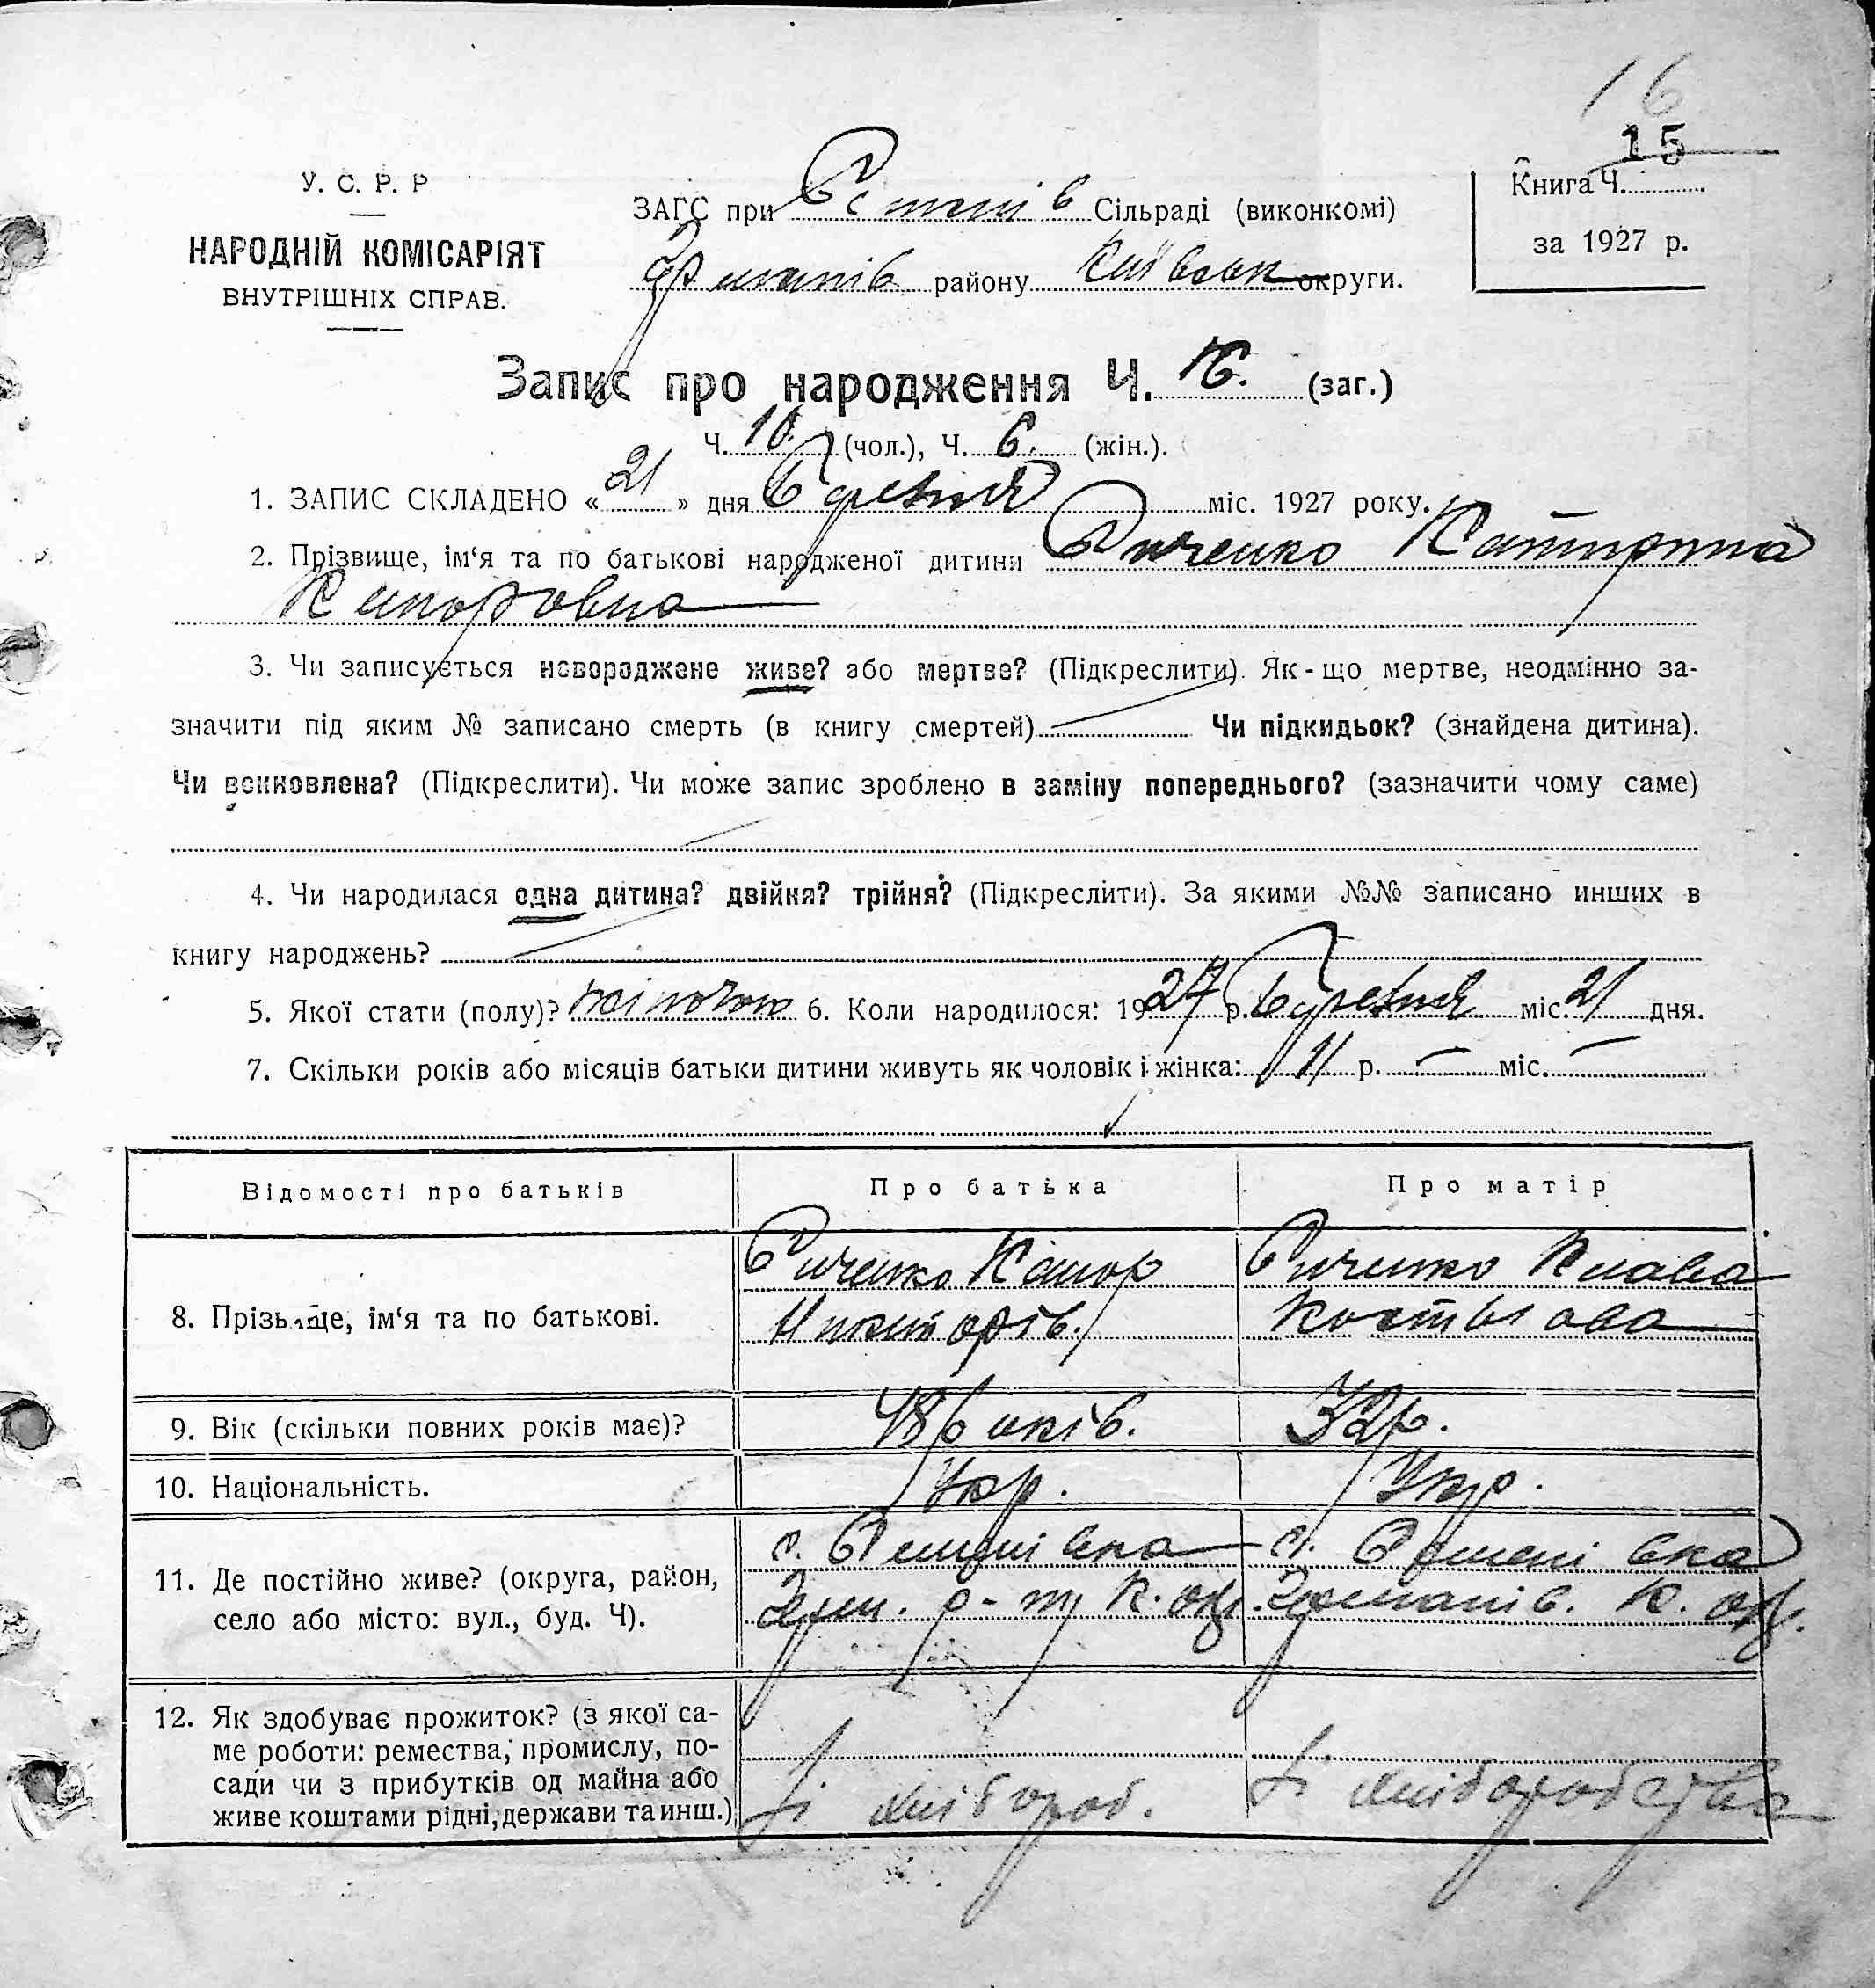 16
15
У. С. Р. Р
НАРОДНІЙ КОМІСАРІЯТ
ВНУТРІШНІХ СПРАВ.
ЗАГС при Сільраді (виконкомі)
району Київськ округи.
Книга Ч.
за 1927 р.
Запис про народження Ч. 16. (заг.)
Ч. 10. (чол.), Ч. 6. (жін.).
1. ЗАПИС СКЛАДЕНО «21» дня Березня міс. 1927 року.
2. Прізвище, ім‘я та по батькові народженої дитини
3. Чи записується новороджене живе? або мертве? (Підкреслити). Як-що мертве, неодмінно за-
значити під яким № записано смерть (в книгу смертей) Чи підкидьок? (знайдена дитина).
Чи всиновлена? (Підкреслити). Чи може запис зроблено в заміну попереднього? (зазначити чому саме)
4. Чи народилася одна дитина? двійня? трійня? (Підкреслити). За якими №№ записано инших в
книгу народжень?
5. Якої стати (полу)? жіночою 6. Коли народилося: 1927 р. Березня міс. 21 дня.
7. Скільки років або місяців батьки дитини живуть як чоловік і жінка: 11 р. — міс. —
Відомості про батьків Про батька Про матір
8. Прізвище, ім‘я та по батькові.
9. Вік (скільки повних років має)? 48 років. 32 р.
10. Національність. Укр. Укр.
11. Де постійно живе? (округа, район,
село або місто: вул., буд. Ч).
12. Як здобуває прожиток? (з якої са-
ме роботи: ремества, промислу, по-
сади чи з прибутків од майна або
живе коштами рідні, держави та инш.)
Зі хлібороб. Зі хліборобства